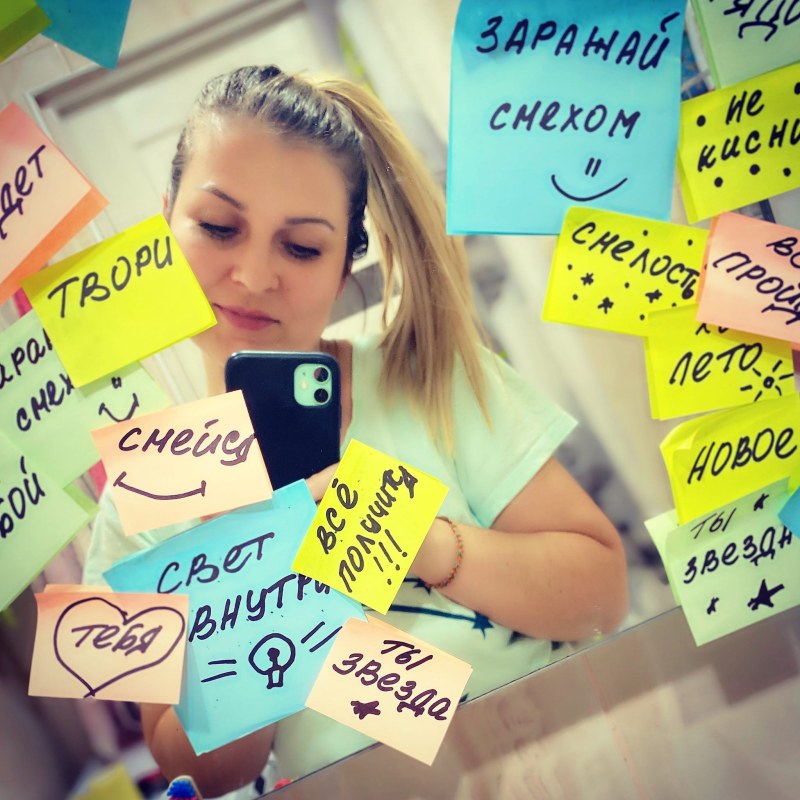 ЗАРАЖАЙ
СМЕХОМ
НЕ
КИСНИ
ТВОРИ
СМЕЛОСТЬ
ПРОЙД
ЛЕТО
СМЕЙСЯ
НОВОЕ
ВСЁ
ПОЛУЧИТСЯ
!!!
ТЫ
ЗВЕЗД
СВЕТ
ВНУТРИ
ТЕБЯ
ТЫ
ЗВЕЗДА